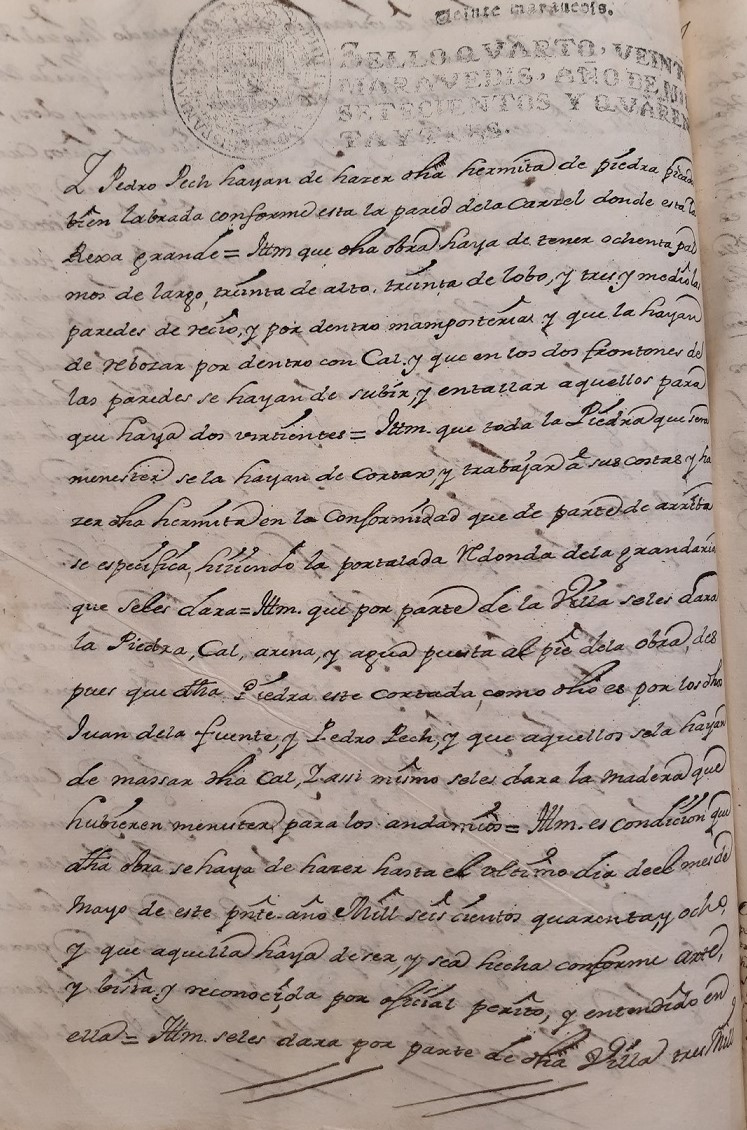 Veinte maravedis.
SELLO QVARTO, VEINT
MARAVEDIS, AÑO DE MIL
SETECIENTOS Y QVAREN
TAYTRES.
Y Pedro Pech hayan de hazer dha hermita de piedra picada
bien labrada conforme esta la pared dela Carzel donde esta la
Rexa grande = Ittm que dha obra haya de tener ochenta pal
mos de largo, treinta de alto, treinta de lobo, y tres y medio las
paredes de recio, y por dentro mamposterias y que la hayan
de rebozar por dentro con Cal, y que en los dos frontones de
las paredes se hayan de subir, y entallar aquellos para
que haya dos virtientes = Ittm. que toda la Piedra que sera
menester se la hayan de Cortar, y trabajar â sus costas y ha
zer dha hermita en la Conformidad que de parte de arriba
se especifica, hiziendo la portalada Rdonda dela grandaria
que seles dara = Ittm. que por parte de la Villa seles dara
la Piedra, Cal, arena, y agua puesta al pie dela obra, des
pues que dtha Piedra este cortada, como dho es por los dhos
Juan dela fuente, y Pedro Pech, y que aquellos sela hayan
de massar dha Cal, Y assi mismo seles dara la madera que
hubieren menester para los andamios = Ittm. es condicion que
dtha obra se haya de hazer hasta el vltimo dia deel mes de
Mayo de este pnte año Mill seis cientos quarenta, y ocho,
y que aquella haya de ser, y sea hecha conforme arte,
y bista, y reconocida por oficial perito, y entendido en
ella = Ittm. seles dara por parte de dha Villa tres Mill